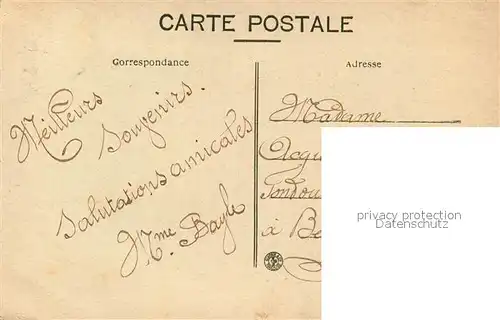 CARTE POSTALE
Correspondance
Adresse
Meilleurs
Souvenirs.
Salutations amicales
Mme Bayle
Madame
à
privacy protection
Datenschutz